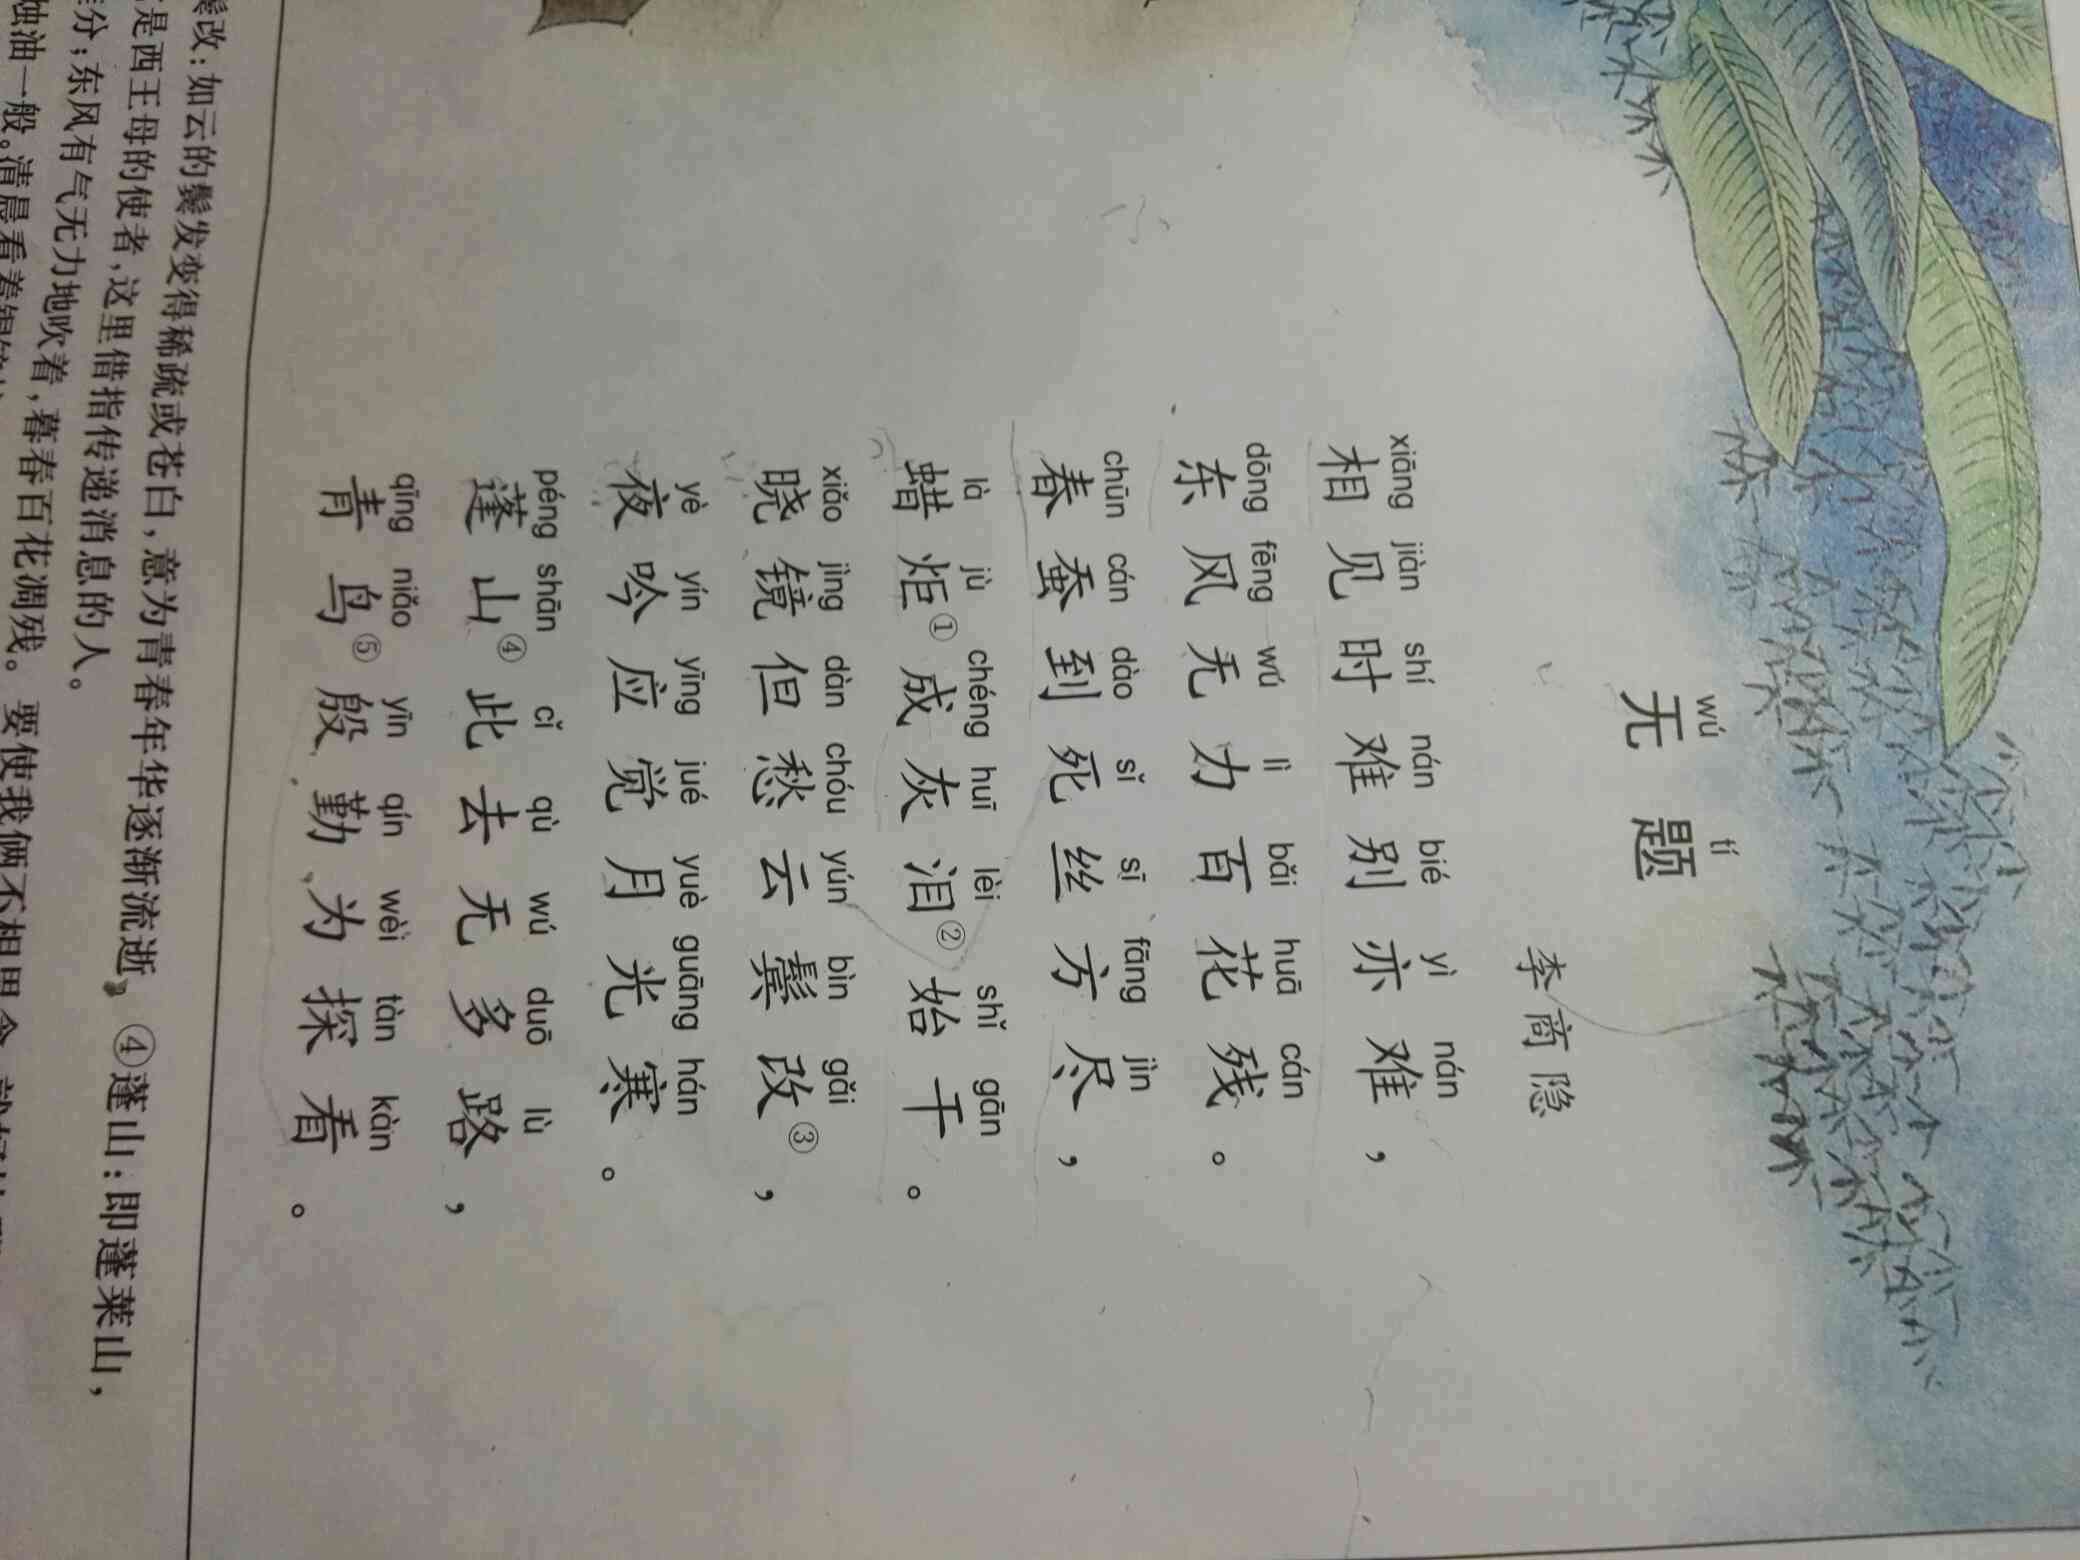 wú tí
无题
李商隐
xiāng jiàn shí nán bié yì nán
相见时难别亦难，
dōng fēng wú lì bǎi huā cán
东风无力百花残。
chūn cán dào sǐ sī fāng jìn
春蚕到死丝方尽，
là jù chéng huī lèi shǐ gān
蜡炬①成灰泪②始干。
xiǎo jìng dàn chóu yún bìn gǎi
晓镜但愁云鬓改③，
yè yín yīng jué yuè guāng hán
夜吟应觉月光寒。
péng shān cǐ qù wú duō lù
蓬山④此去无多路，
qīng niǎo yīn qín wèi tàn kàn
青鸟⑤殷勤为探看。
鬓改：如云的鬓发变得稀疏或苍白，意为青春年华逐渐流逝。④蓬山：即蓬莱山，
是西王母的使者，这里借指传递消息的人。
分；东风有气无力地吹着，暮春百花凋残。要使我俩不相思念，
油一般。清晨看着